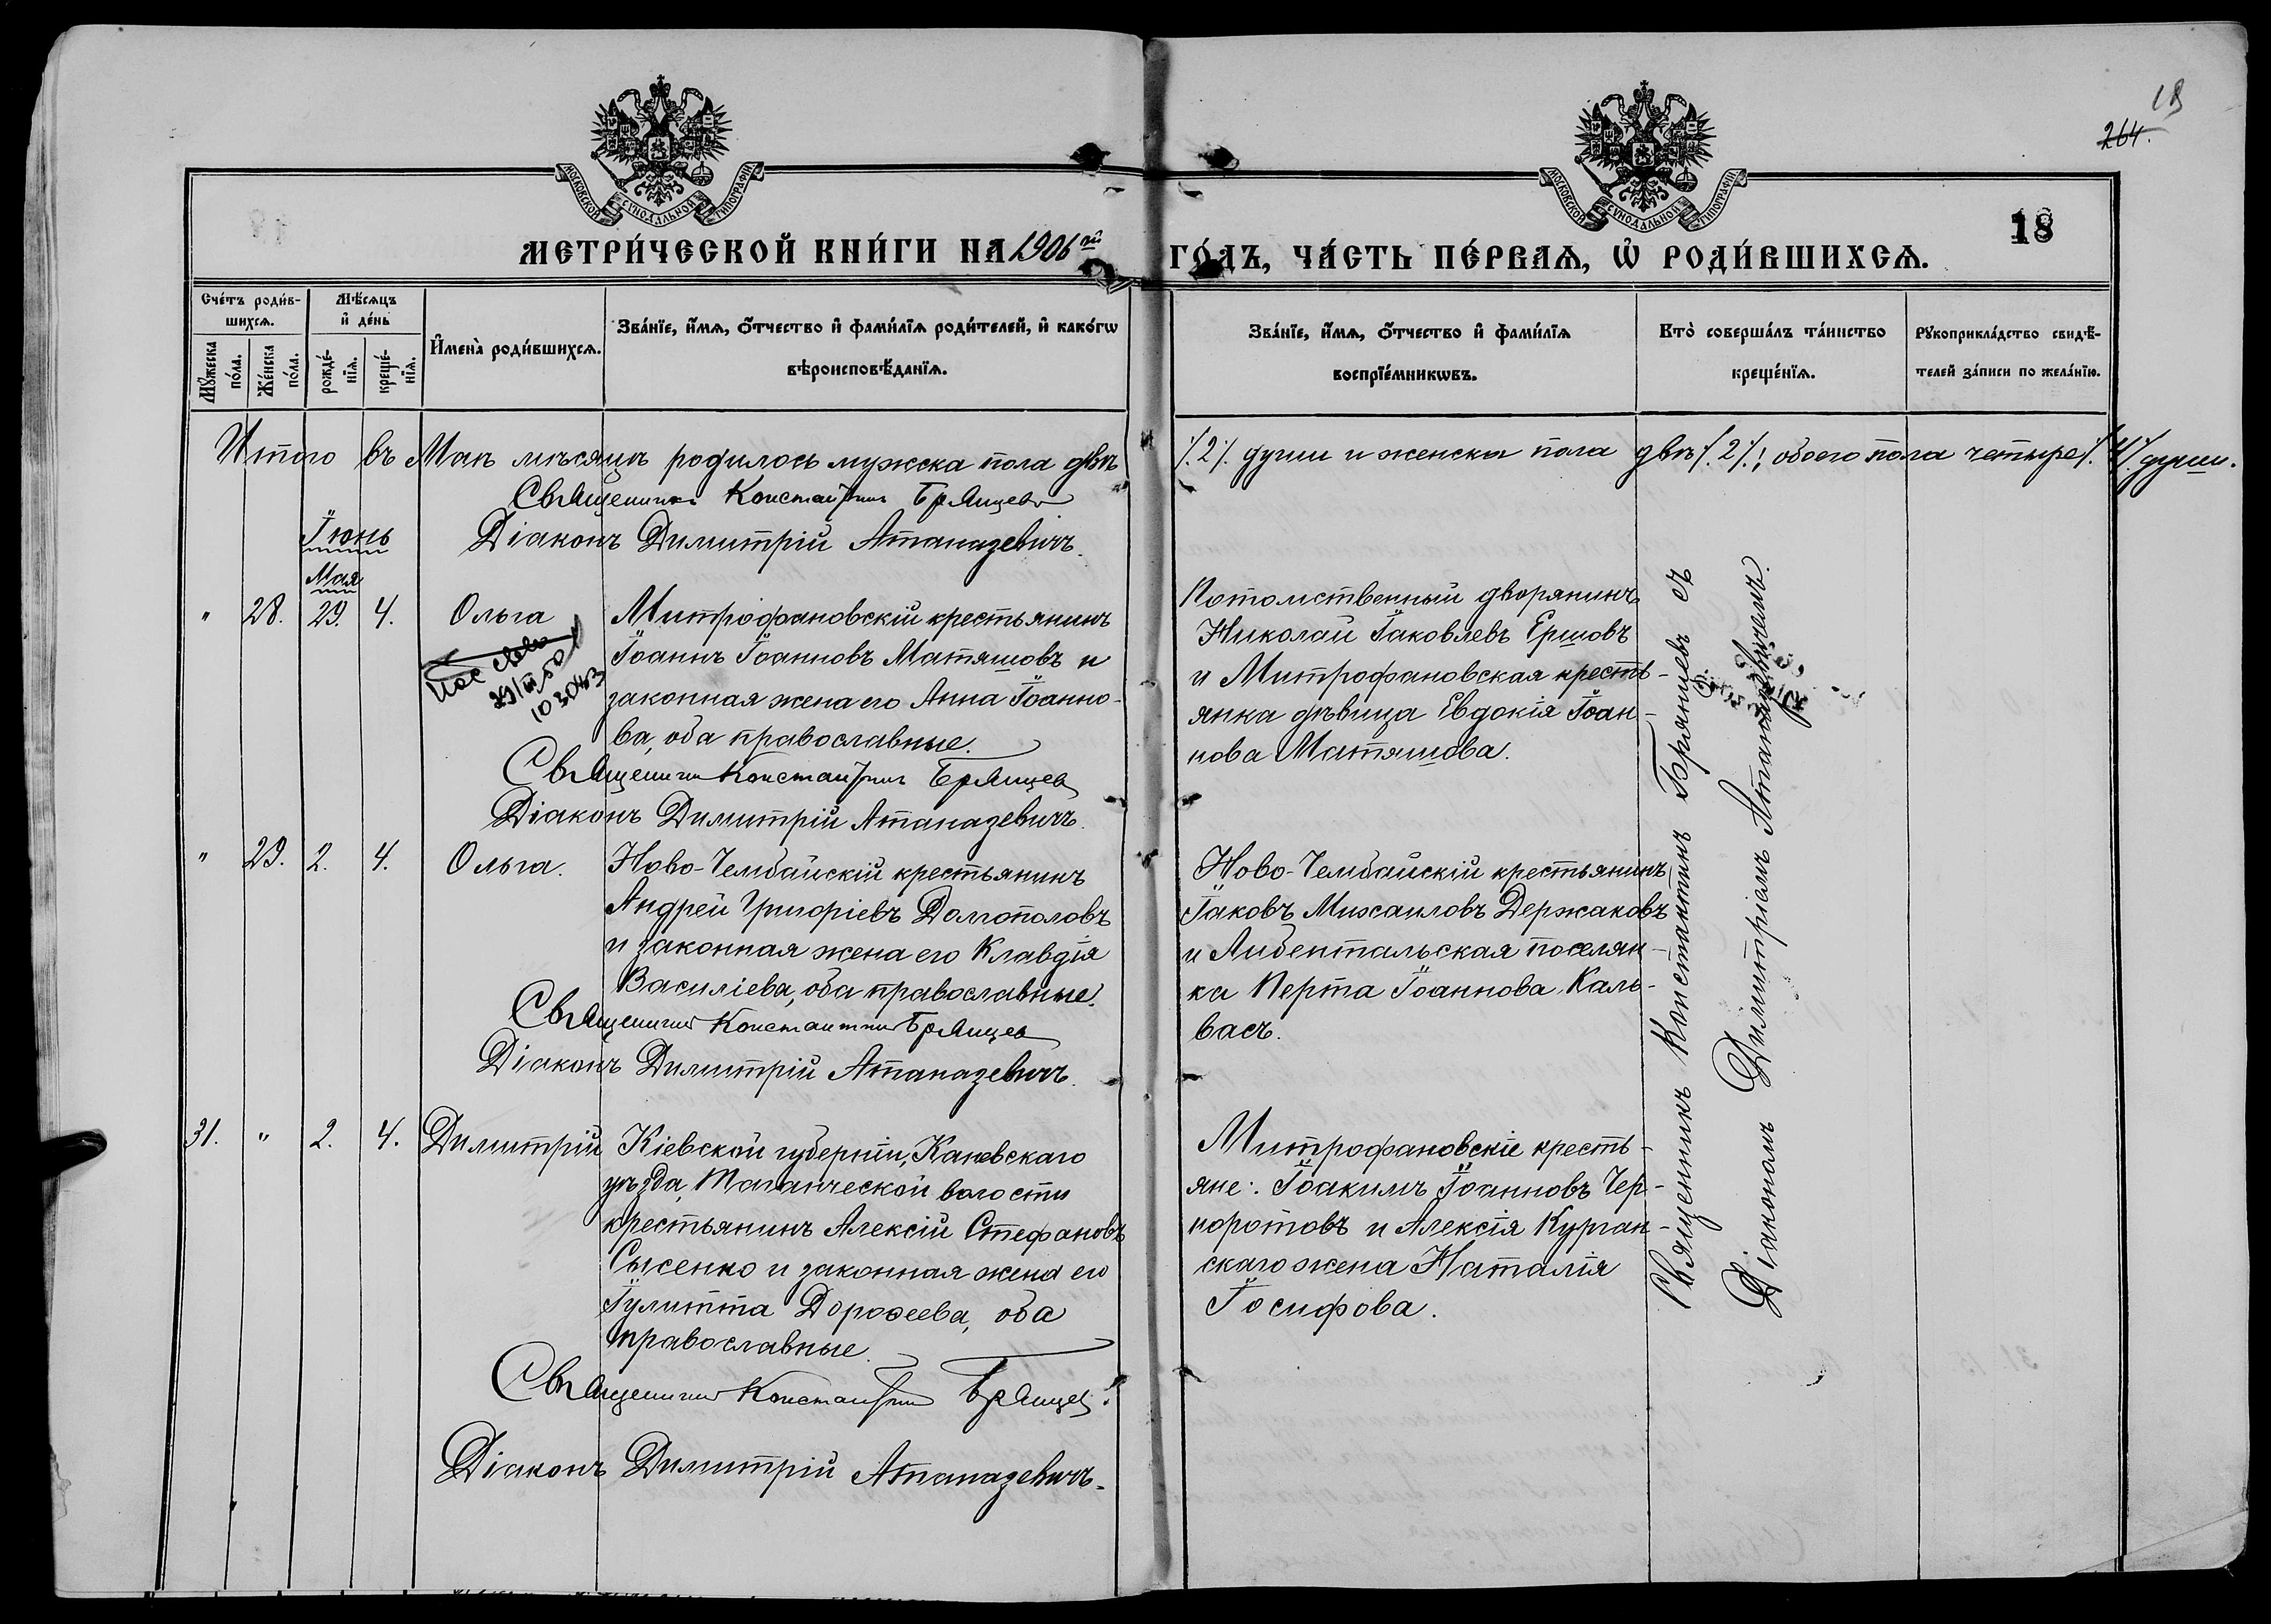 18
264.
МОСКОВСКОЙ СѴНОДАЛЬНОЙ ТИПОГРАФІИ
МОСКОВСКОЙ СѴНОДАЛЬНОЙ ТИПОГРАФІИ
18
МЕТРИ́ЧЕСКОЙ КНИ́ГИ НА 1906 й ГО́ДЪ, ЧА́СТЬ ПЕ́РВАѦ, Ѡ РОДИ́ВШИХСѦ.
Сче́тъ роди́в-
шихсѧ.
Мꙋ́жеска по́ла.
Же́нска по́ла.
Мѣ́сѧцъ и҆ де́нь
рожде́-нїѧ.
креще́-нїѧ.
И҆мена̀ роди́вшихсѧ.
Зва́нїе, и҆́мѧ, ѻ҆́тчество и҆ фами́лїѧ роди́телей, и҆ како́гѡ
вѣроисповѣ́данїѧ.
Зва́нїе, и҆́мѧ, ѻ҆́тчество и҆ фами́лїѧ
воспрїе́мникѡвъ.
Кто̀ соверша́лъ та́инство
креще́нїѧ.
Рꙋкоприкла́дство свидѣ́-
телей за́писи по жела́нїю.
Итого въ Маѣ мѣсяцѣ родилось мужска пола двѣ /.2/. души и женска пола двѣ /.2/.; обоего пола четыре /.4/. души.
Священникъ Константинъ Брянцевъ
Діаконъ Димитрій Атаназевичъ.
Іюнь
Мая
" 28. 29. 4. Ольга
29/III 50
103043
Митрофановскій крестьянинъ
Іоаннъ Іоанновъ Матяшовъ и
законная жена его Анна Іоанно-
ва, оба православные.
Священникъ Константинъ Брянцевъ
Діаконъ Димитрій Атаназевичъ.
Потомственный дворянинъ
Николай Іаковлевъ Ершовъ
и Митрофановская кресть-
янка дѣвица Евдокія Іоан-
нова Матяшова.
Священникъ Константинъ Брянцевъ съ
Діакономъ Димитріемъ Атаназевичемъ.
" 29. 2. 4. Ольга.
Ново-Чембайскій крестьянинъ
Андрей Григоріевъ Домополовъ
и законная жена его Клавдія
Василіева, оба православные.
Священникъ Константинъ Брянцевъ
Діаконъ Димитрій Атаназевичъ.
Ново-Чембайскій крестьянинъ
Іаковъ Михаиловъ Держаковъ
и Либентальская поселян-
ка Перта Іоаннова Каль-
васъ.
31. " 2. 4. Димитрій
Кіевской губерніи, Каневскаго
уѣзда, Таганческой волости
крестьянинъ Алексій Стефановъ
Сысенко и законная жена его
Іулитта Дороѳеева, оба
православные.
Священникъ Константинъ Брянцевъ.
Діаконъ Димитрій Атаназевичъ.
Митрофановскіе кресть-
яне: Іоакимъ Іоанновъ Чер-
норотовъ и Алексія Курган-
скаго жена Наталія
Іосифова.